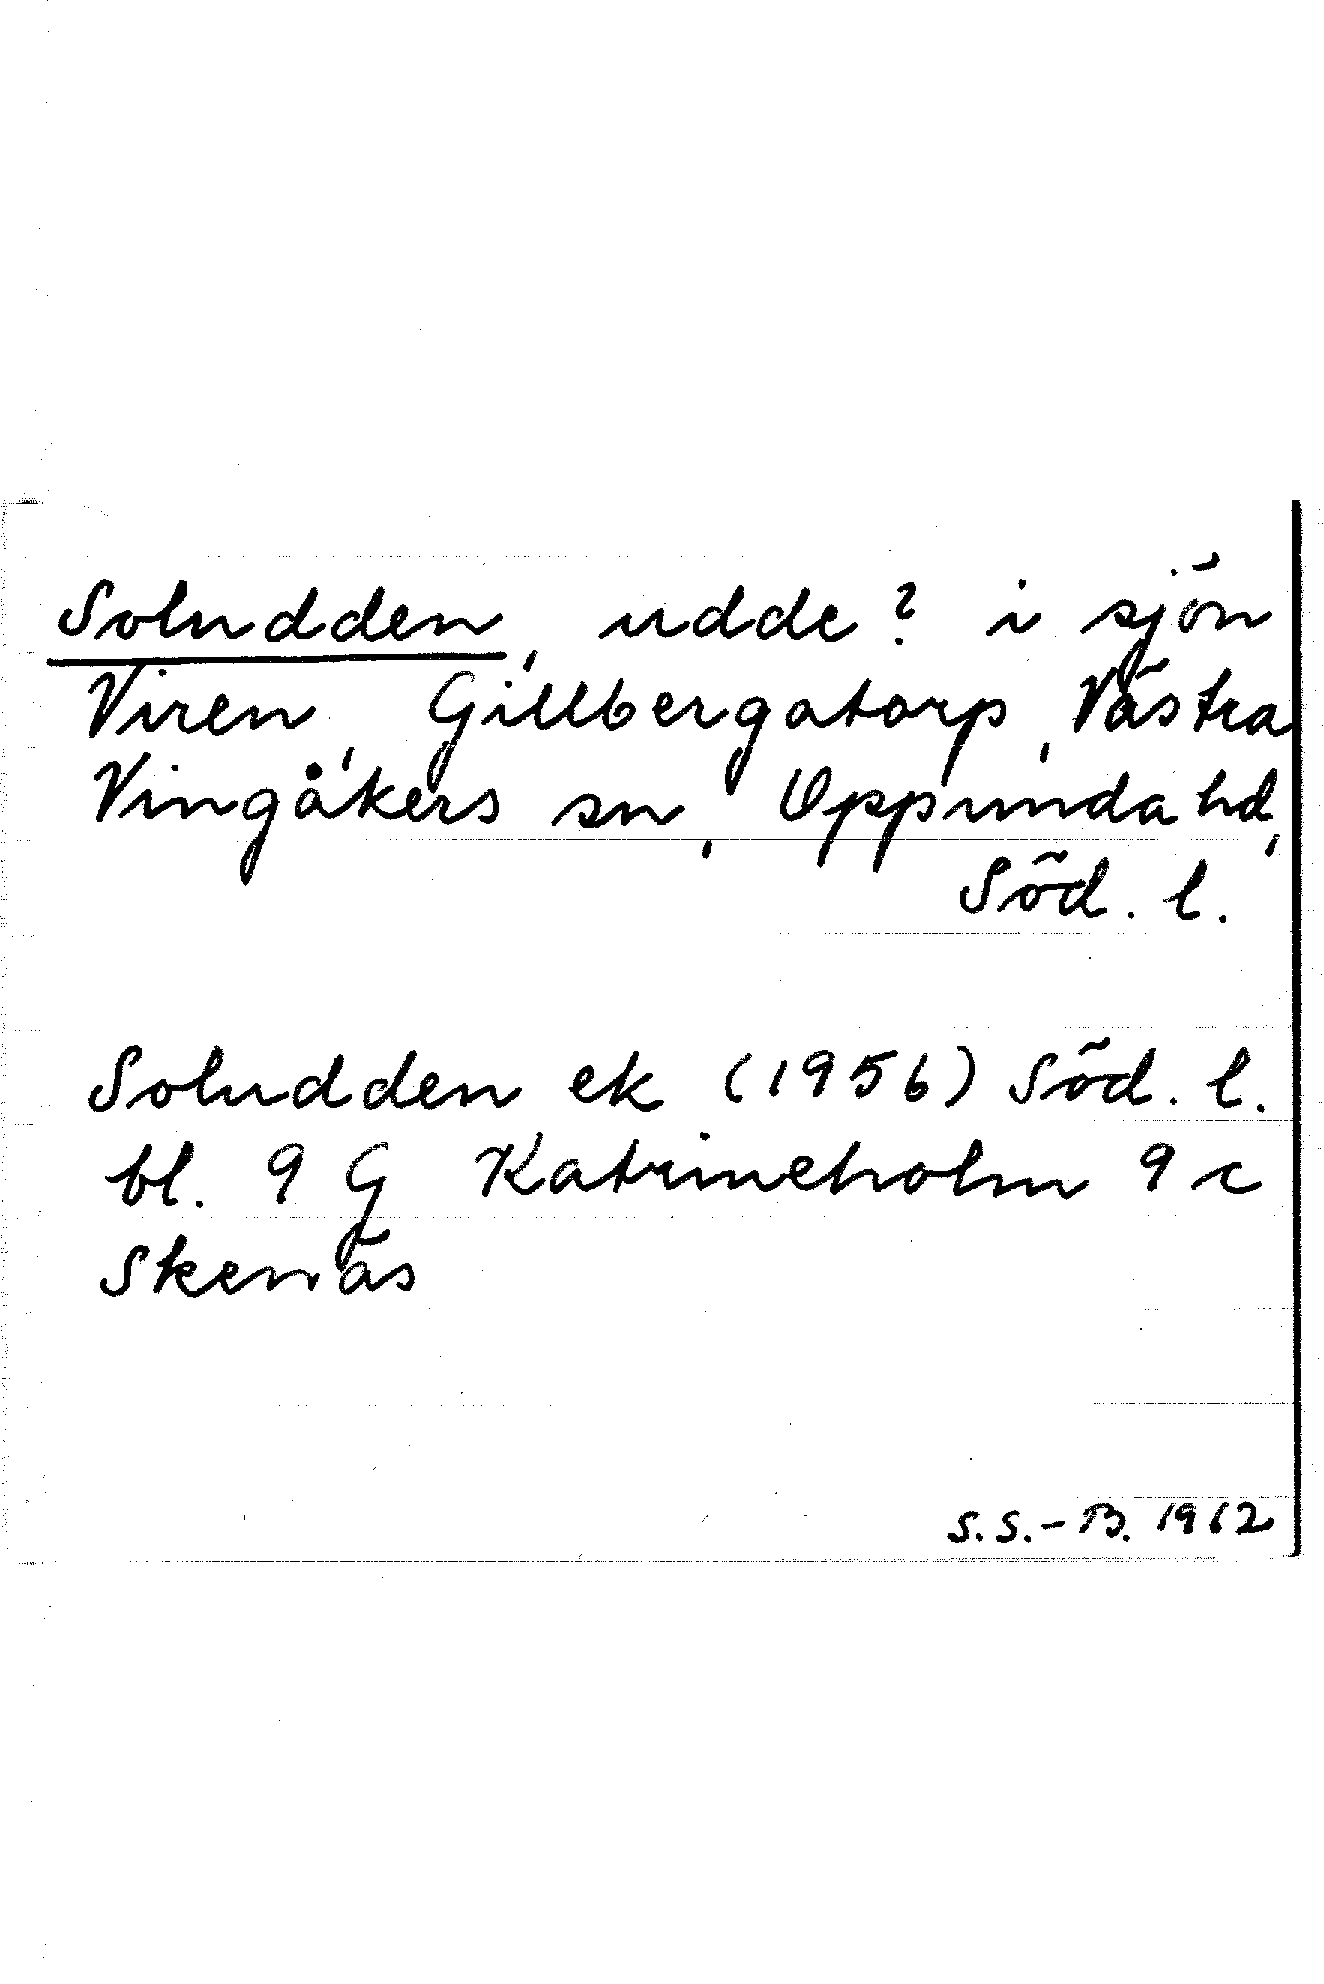 Soludden, udde? i sjön
Viren, Gillbergatorp, Västra
Vingåkers sn, Oppunda hd,
Söd. l.
Soludden ek (1956) Söd. l.
bl. 9 G Katrineholm 9 c
Skenäs
S.S.-B. 1962